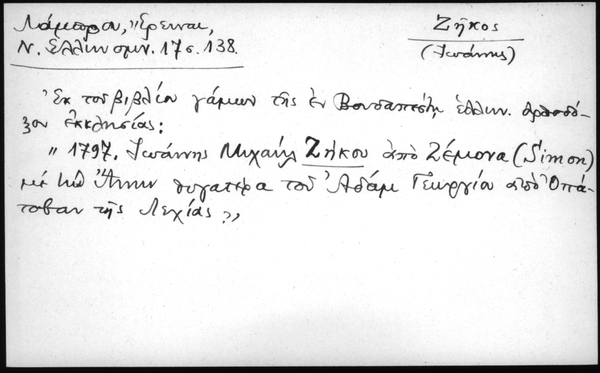 Λάμπρου, "Ἔρευναι,
Ν. Ἑλλην ομν. 17 σ. 138.
Ζῆκος
(Ἰωάννης)
Ἐκ τοῦ βιβλίου γάμων τῆς ἐν Βουδαπέστῃ ἑλλην. ὀρθοδό-
ξου ἐκκλησίας:
" 1797. Ἰωάννης Μιχαὴλ Ζήκου ἀπὸ Ζέμονα (Simon)
μὲ τὴν Ἄνναν θυγατέρα τοῦ Ἀδὰμ Γεωργίου ἀπὸ Ὀπά-
τοβαν τῆς Λεχίας "